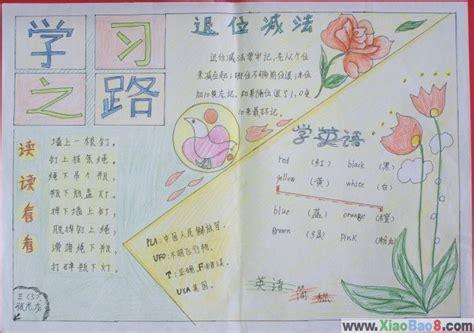 学习
之路
退位减法
退位减法要牢记,先从个位
来减在起;哪位不够前位退,本位
加10莫忘记。如果隔位退了1,0变
10来最好记。
读读看看
墙上一根钉,
钉上挂条绳,
绳下吊个瓶,
瓶下放盏灯。
掉下墙上钉,
脱掉钉上绳,
滑落绳下瓶,
打碎瓶下灯。
三(3)
学英语
red (红) black (黑)
yellow (黄) white (白)
blue (蓝) orange (橙)
Brown (棕) Pink (粉)
PLA:中国人民解放军。
UFO:不明飞行物。
T:正确 F:错误。
USA美国。
英语
简称
www.XiaoBao8.com